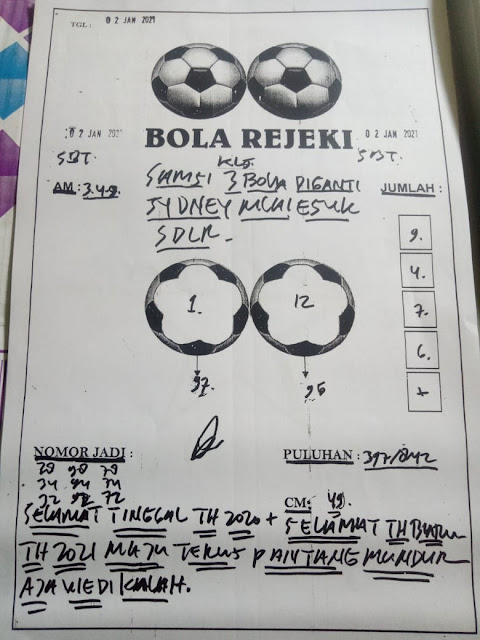 TGL : 02 JAN 2021
02 JAN 202
BOLA REJEKI
02 JAN 2021
SBT.
SBT.
AM : 3.4.9.
KLJ.
3 BOLA DIGANTI
SYDNEY MULAI ESUK
SDLR-
JUMLAH :
9.
4.
7.
6.
+
1.
12
97.
95
NOMOR JADI :
34 94 74
32 92 72
PULUHAN :
CM: 49.
SELAMAT TINGGAL TH 2020 + SELAMAT TH BARU
TH 2021 MAJU TERUS PANTANG MUNDUR
AJA WEDI KALAH.